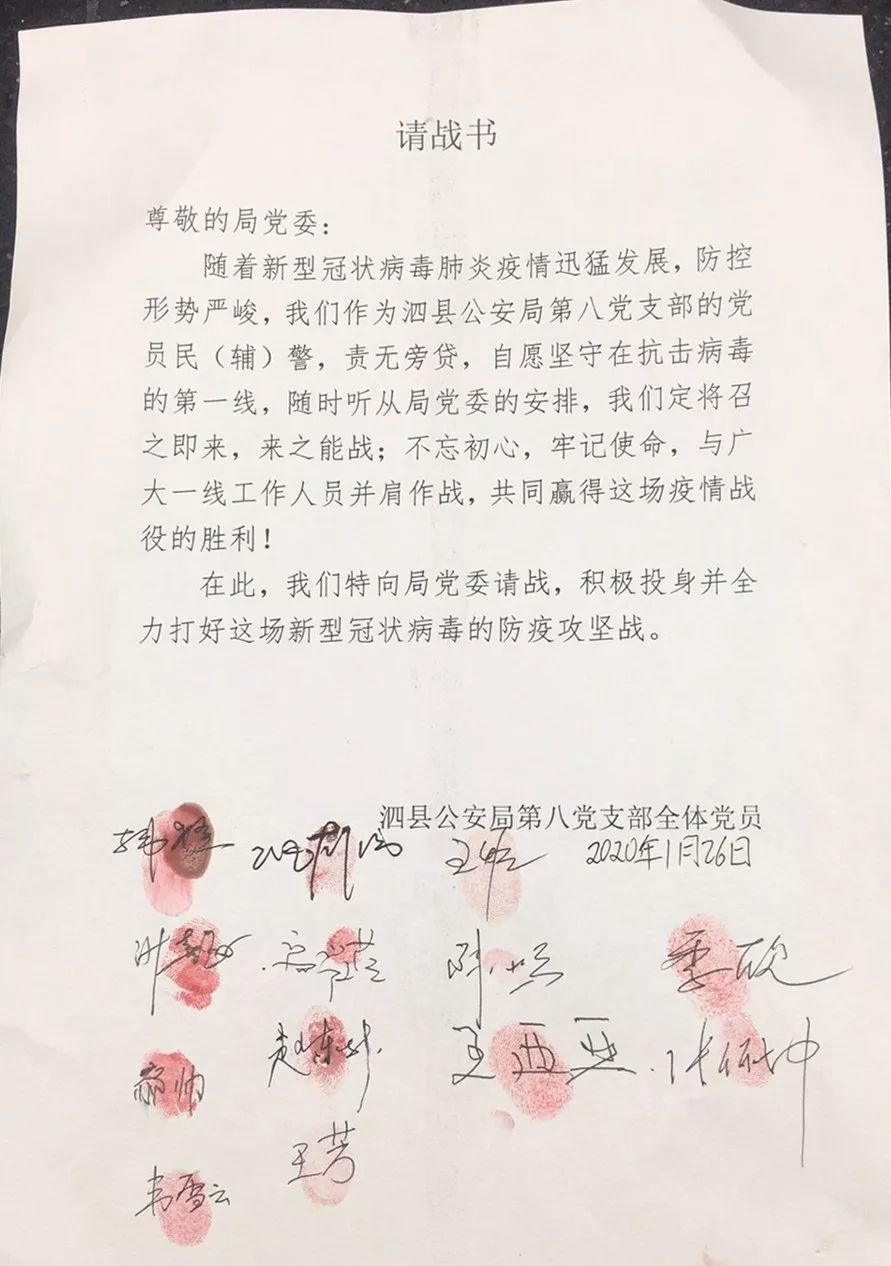 请战书
尊敬的局党委：
随着新型冠状病毒肺炎疫情迅猛发展，防控
形势严峻，我们作为泗县公安局第八党支部的党
员民（辅）警，责无旁贷，自愿坚守在抗击病毒
的第一线，随时听从局党委的安排，我们定将召
之即来，来之能战；不忘初心，牢记使命，与广
大一线工作人员并肩作战，共同赢得这场疫情战
役的胜利！
在此，我们特向局党委请战，积极投身并全
力打好这场新型冠状病毒的防疫攻坚战。
泗县公安局第八党支部全体党员
2020年1月26日
季欣
王西亚
王芳
韦雪云